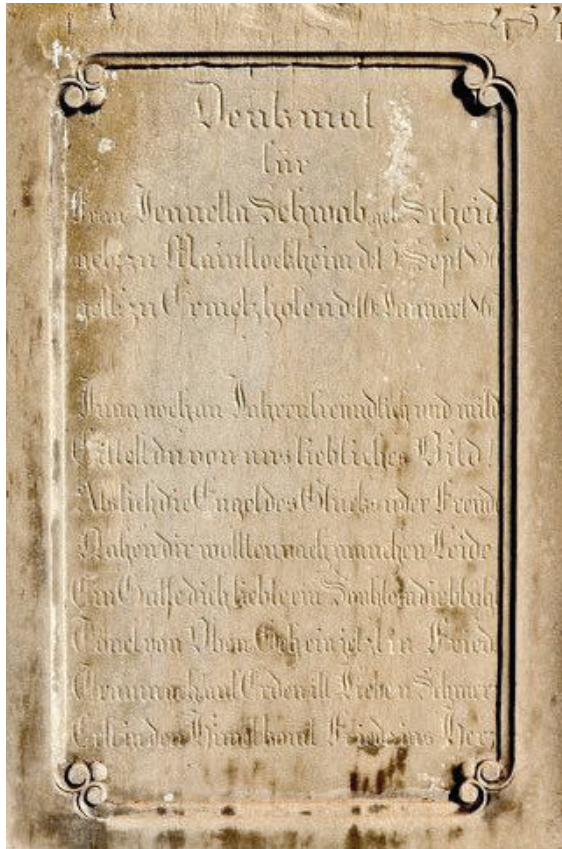 Denkmal
für
Frau Jennetta Schwab geb. Scheid
geb. zu Mainstockheim d. 15 Sept
gest. zu Ermetzhofen d. 16. Januar
Jung noch an Jahren freundlich und mild
Eiltest du von uns liebliches Bild!
Als sich die Engel des Glücks der Freude
Nahen dir wollten nach manchen Leide
Ein Gatte dich liebte ein Söhnlein die blüht
Tönet von Oben Geh ein jetzt in Fried
auf Erden ist Lieben Schmerz
Erst in den Himel komt Friede ins Herz